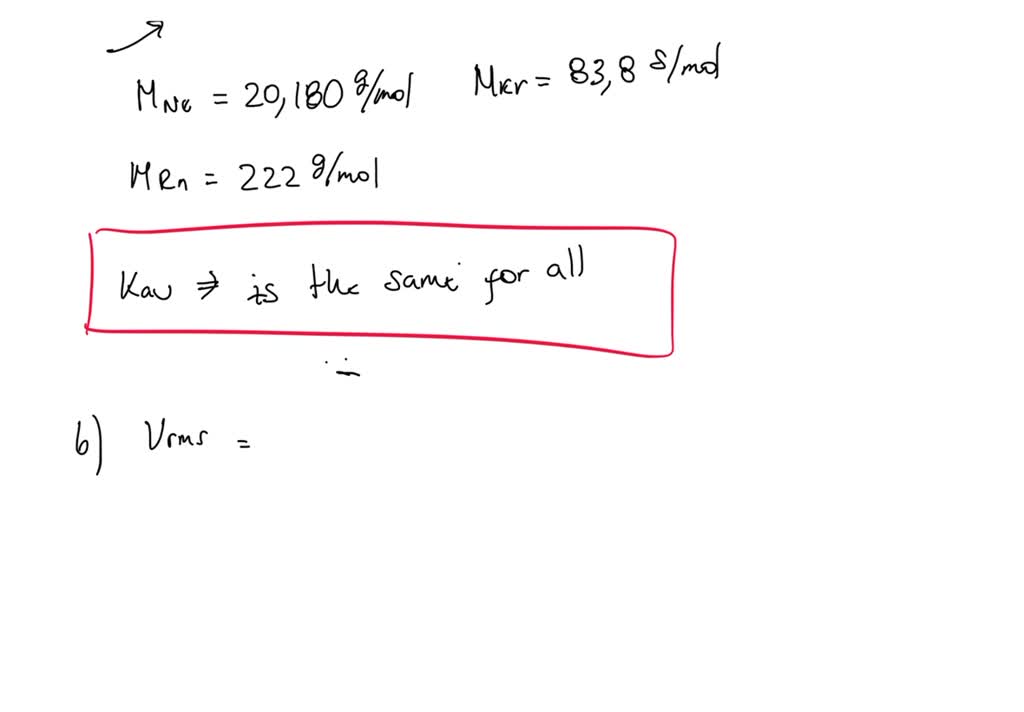 M_Ne = 20,180 g/mol M_Kr = 83,8 g/mol
M_Rn = 222 g/mol
Kav ⇒ is the same for all
b) Vrms =